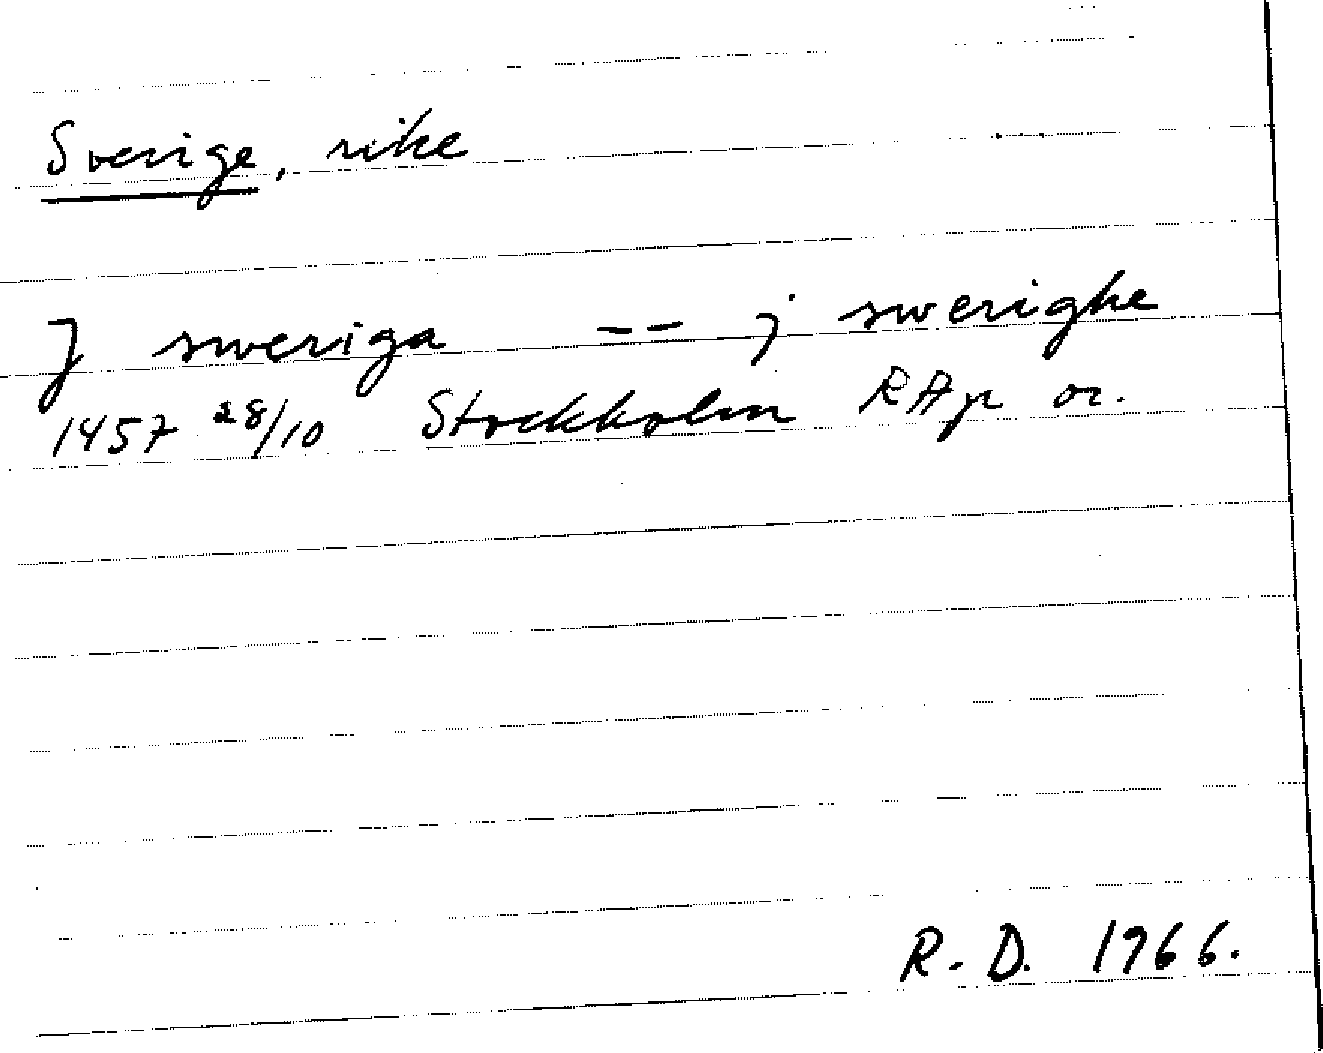 Sverige, rike
J sweriga -- j swerighe
1457 28/10 Stockholm RAp or.
R.D. 1966.